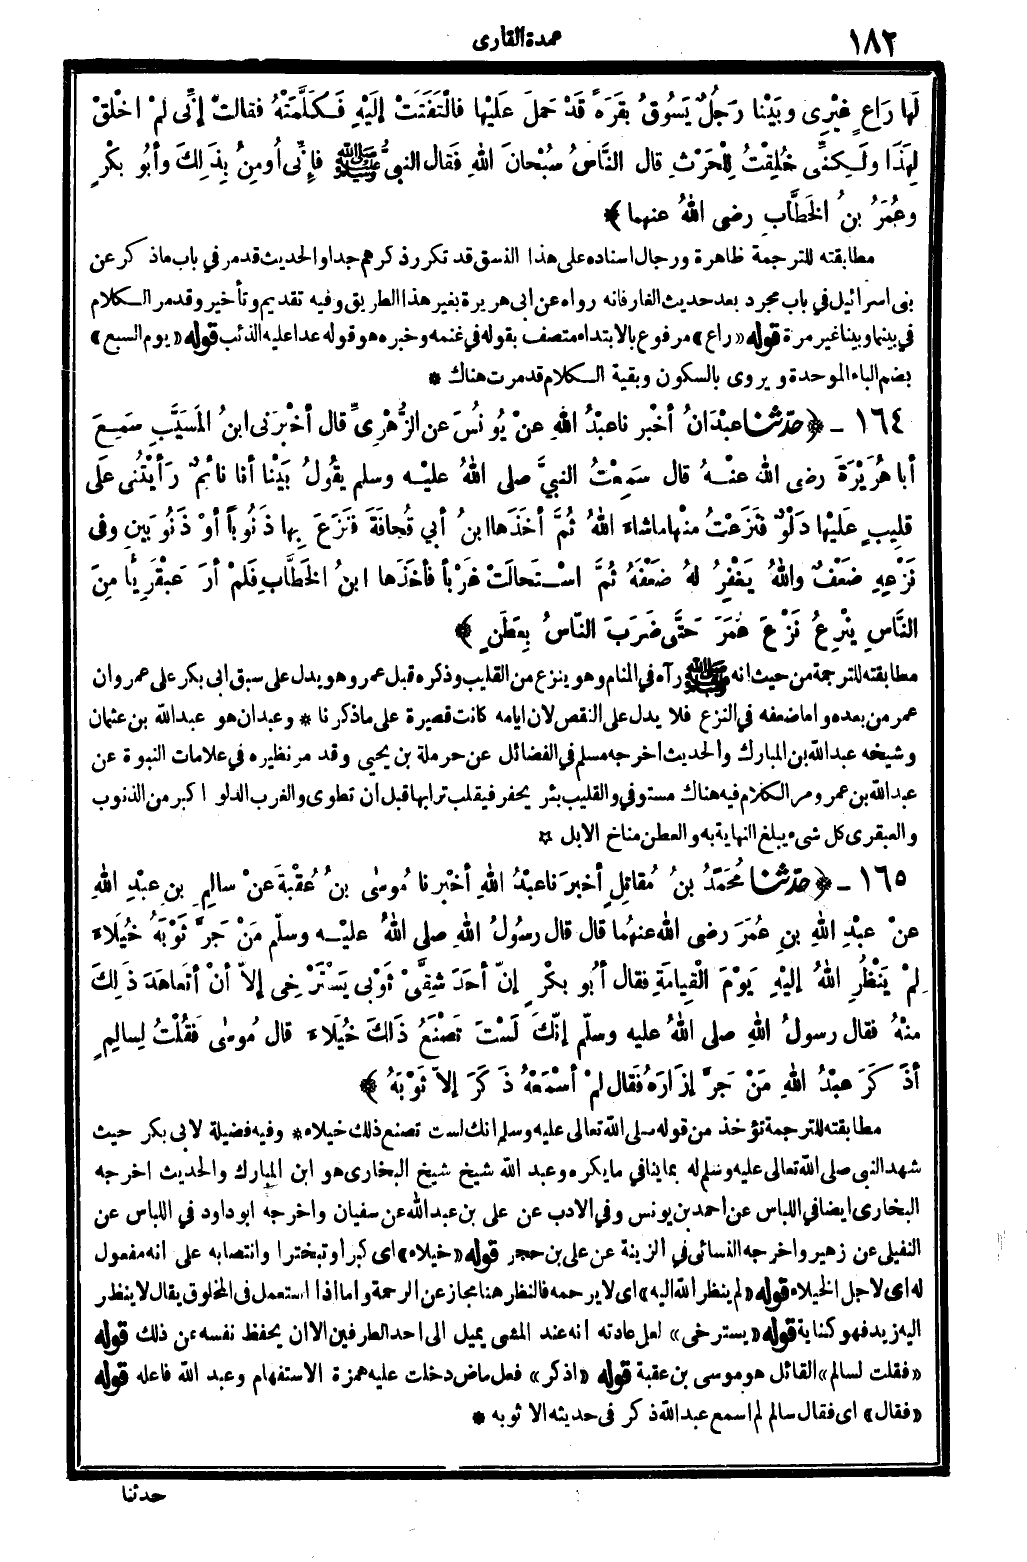 ١٨٢
عمدة القارى
لَها رَاعٍ غَيْرِى وبَيْنا رَجُلٌ يَسُوقُ بَقَرَةً قَدْ حَملَ عَلَيْها فالْتَفَتَتْ إلَيْهِ فَـكَلَّمَتْهُ فقالتْ إنِّى لمْ اخْلقْ
لِهَذَا ولَـكِنِّى خُلِقْتُ لِلْحَرْثِ قال النَّاسُ سُبْحانَ اللهِ فَقال النبىُّ ﷺ فإنِّى أُومِنُ بِذَلِكَ وأبُو بكْرٍ
وعُمَرُ بنُ الخَطَّابِ رضى اللهُ عنهما ﴾
مطابقته للترجمة ظاهرة ورجال اسناده على هذا النسق قد تكرر ذكرهم جدا والحديث قد مر في باب ماذكر عن
بنى اسرائيل في باب مجرد بعد حديث الغار فانه رواه عن ابى هريرة بغير هذا الطريق وفيه تقديم وتأخير وقد مر الـكلام
في بينما وبينا غير مرة قوله «راع» مرفوع بالابتداء متصف بقوله في غنمه وخبره هو قوله عدا عليه الذئب قوله «يوم السبع»
بضم الباء الموحدة ويروى بالسكون وبقية الـكلام قد مرت هناك *
١٦٤ - ﴿ حدّثنا عبْدَانُ أخْبرنا عبْدُ اللهِ عنْ يُونُسَ عن الزُّهْرِىِّ قال أخْبرَنى ابنُ المُسَيَّبِ سَمِعَ
أبا هُرَيْرَةَ رضى اللهُ عنْـهُ قال سَمِعْتُ النبىَّ صلى اللهُ عليْـه وسلم يقُولُ بَيْنا أنا نائِمٌ رَأيْتُنى عَلَى
قلِيبٍ عَلَيْها دَلْوٌ فَنَزَعْتُ مِنْها ماشاءَ اللهُ ثُمَّ أخَذَها ابنُ أبي قُحافَةَ فَنَزَعَ بِها ذَنُوباً أوْ ذَنُوبَينِ وفى
نَزْعِهِ ضَعْفٌ واللهُ يَغْفِرُ لهُ ضَعْفَهُ ثُمَّ اسْـتَحالَتْ غَرْباً فأخَذَها ابنُ الخَطَّابِ فلَمْ أرَ عَبقَرِيًّا مِنَ
النَّاسِ ينْزِعُ نَزْعَ عُمَرَ حَتَّى ضَرَبَ النَّاسُ بِعَطَنٍ ﴾
مطابقته للترجمة من حيث انه ﷺ رآه في المنام وهو ينزع من القليب وذكره قبل عمر وهو يدل على سبق ابى بكر على عمر وان
عمر من بعده واما ضعفه في النزع فلا يدل على النقص لان ايامه كانت قصيرة على ماذكرنا * وعبدان هو عبدالله بن عثمان
وشيخه عبدالله بن المبارك والحديث اخرجه مسلم في الفضائل عن حرملة بن يحيى وقد مر نظيره في علامات النبوة عن
عبدالله بن عمر ومر الـكلام فيه هناك مستوفي والقليب بئر يحفر فيقلب ترابها قبل ان تطوى والغرب الدلو اكبر من الذنوب
والعبقرى كل شىء يبلغ النهاية به والعطن مناخ الابل ¤
١٦٥ - ﴿ حدّثنا مُحَمَّدُ بنُ مُقاتِلٍ أخبرَنا عبْدُ اللهِ أخْبرنا مُوسٰى بنُ عُقْبَةَ عنْ سالِمِ بنِ عبْدِ اللهِ
عنْ عبْدِ اللهِ بنِ عُمَرَ رضى اللهُ عنهُما قال قال رسُولُ اللهِ صلى اللهُ عليْـه وسلّم مَنْ جَرَّ ثَوْبَهُ خُيَلَاءَ
لمْ يَنْظُرِ اللهُ إلَيْهِ يَوْمَ الْقِيامَةِ فقال أبُو بكْرٍ إنّ أحَدَ شِقَّىْ ثَوْبى يَسْتَرْخِى إلاّ أنْ أتَعاهَدَ ذَلِكَ
منْهُ فقال رسولُ اللهِ صلى اللهُ عليه وسلّم إنّكَ لَسْتَ تَصْنَعُ ذَلكَ خُيَلَاءَ قال مُوسٰى فَقُلْتُ لِسالِمٍ
أذَكَرَ عبْدُ اللهِ مَنْ جَرَّ إزَارَهُ فقال لمْ أسْمَعْهُ ذَكَرَ إلاّ ثَوْبَهُ ﴾
مطابقته للترجمة تؤخذ من قوله صلى الله تعالى عليه وسلم انك لست تصنع ذلك خيلاء* وفيه فضيلة لابى بكر حيث
شهد النبى صلى الله تعالى عليه وسلم له بما ينافي مايكره وعبد الله شيخ شيخ البخارى هو ابن المبارك والحديث اخرجه
البخارى ايضا في اللباس عن احمد بن يونس وفي الادب عن على بن عبدالله عن سفيان واخرجه ابو داود في اللباس عن
النفيلى عن زهير واخرجه النسائى في الزينة عن على بن حجر قوله «خيلاء» اى كبرا وتبخترا وانتصابه على انه مفعول
له اى لاجل الخيلاء قوله «لم ينظر الله اليه» اى لايرحمه فالنظر هنا مجاز عن الرحمة واما اذا استعمل فى المخلوق يقال لاينظر
اليه زيد فهو كناية قوله «يسترخى» لعل عادته انه عند المشى يميل الى احد الطرفين الا ان يحفظ نفسه عن ذلك قوله
«فقلت لسالم» القائل هو موسى بن عقبة قوله «اذكر» فعل ماض دخلت عليه همزة الاستفهام وعبد الله فاعله قوله
«فقال» اى فقال سالم لم اسمع عبدالله ذكر فى حديثه الا ثوبه *
حدثنا